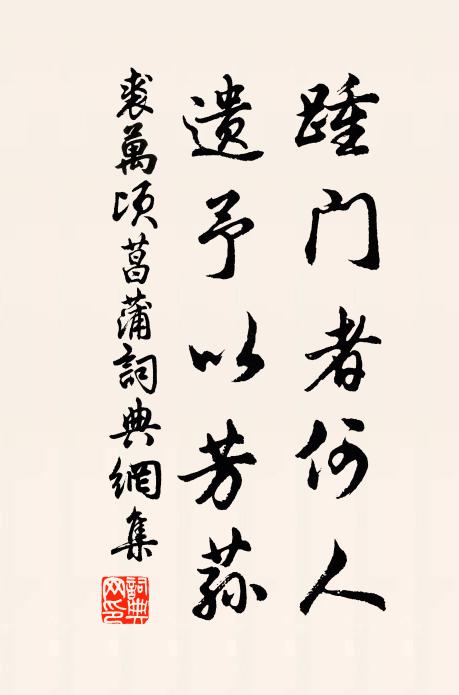 踵门者何人
遗予以芳荪
裘萬顷菖蒲詞典網集
詞典網印